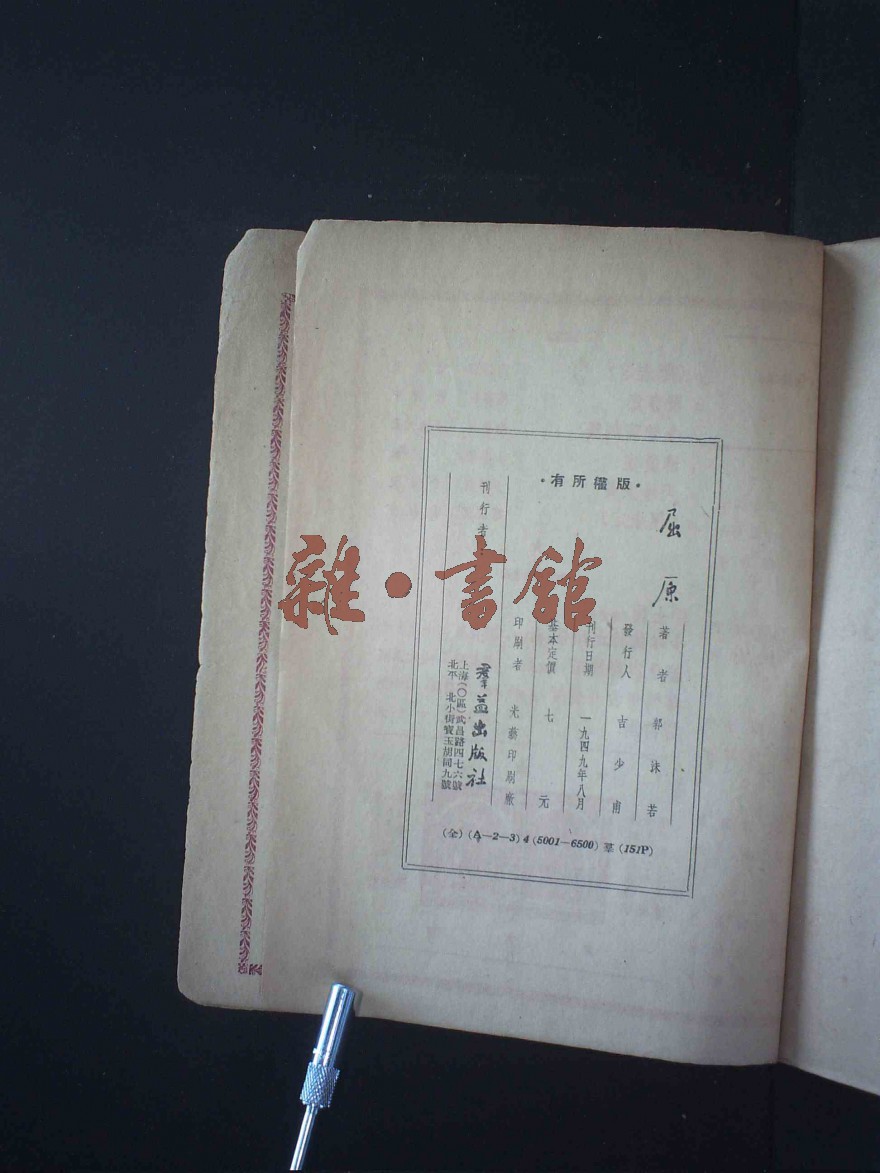 屈原
·版權所有·
著者 郭沫若
發行人 吉少甫
刊行日期 一九四九年八月
基本定價 七元
印刷者 光藝印刷廠
刊行者 羣益出版社
上海(〇區)武昌路四七六號
北平 北小街寶玉胡同九號
(全)(A—2—3)4(5001—6500)基(151P)
雜·書館